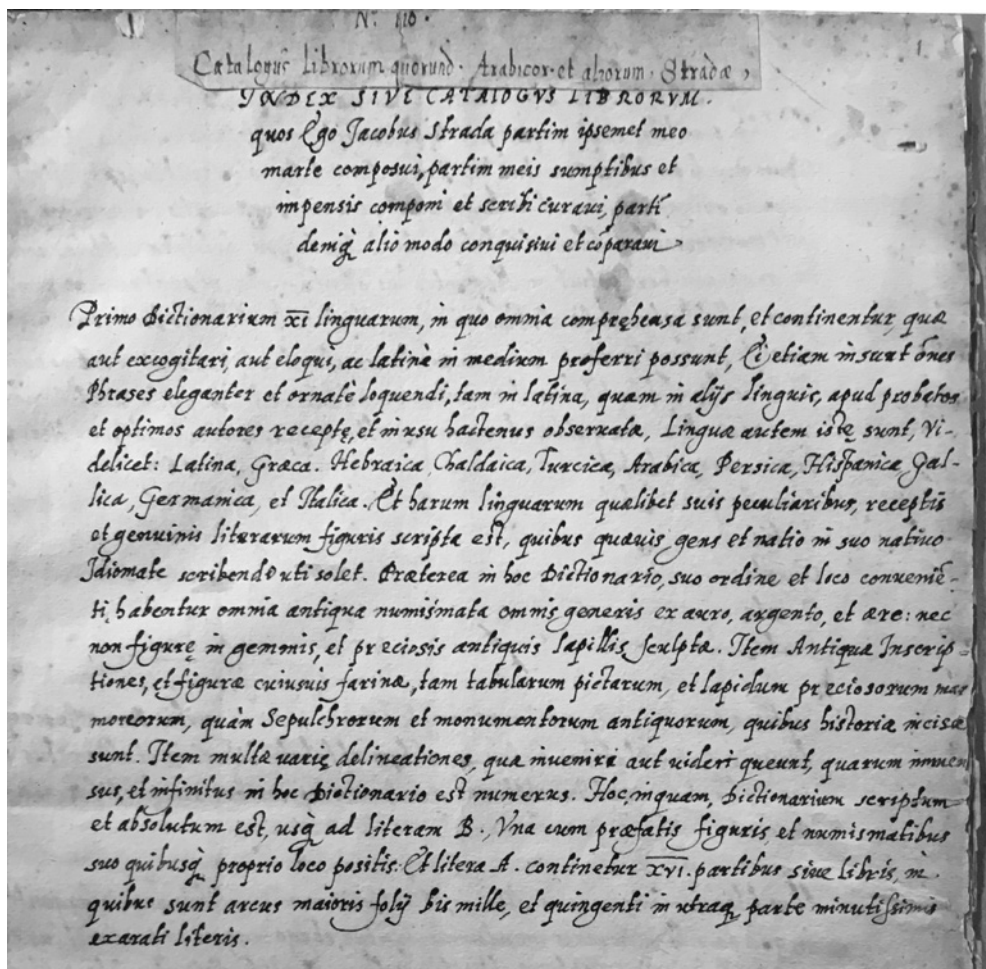 Nº. 110.
1.
Catalogus librorum quorund. Arabicor. et aliorum. Stradæ,
YNDEX SIVE CATALOGVS LIBRORVM.
quos Ego Jacobus Strada partim ipsemet meo
marte composui, partim meis sumptibus et
impensis componi et scribi curaui, partī
deniq; alio modo conquisiui et cōparaui
Primo Dictionarium XI linguarum, in quo omnia compręhensa sunt, et continentur, quæ
aut excogitari, aut eloqui, ac latinè in medium proferri possunt, Cui etiam insunt ōnes
Phrases eleganter et ornatè loquendi, tam in latina, quam in alijs linguis, apud probatos
et optimos autores receptę, et in usu hactenus obseruatæ, Linguæ autem istę sunt, Vi-
delicet: Latina, Græca. Hebraica, Chaldaica, Turcica, Arabica, Persica, Hispanica, Gal-
lica, Germanica, et Italica. Et harum linguarum quælibet suis peculiaribus, receptis
et genuinis literarum figuris scripta est, quibus quæuis gens et natio in suo natiuo
Idiomate scribendo uti solet. Præterea in hoc Dictionario, suo ordine et loco conueniē-
ti, habentur omnia antiqua numismata omnis generis ex auro, argento, et ære: nec
non figurę in gemmis, et preciosis antiquis lapillis sculptæ. Item Antiquæ Inscrip-
tiones, et figuræ cuiusuis farinæ, tam tabularum pictarum, et lapidum preciosorum mar
moreorum, quàm Sepulchrorum et monumentorum antiquorum, quibus historiæ incisæ
sunt. Item multæ uarię delineationes, quæ inuenire aut uideri queunt, quarum immen
sus, et infinitus in hoc Dictionario est numerus. Hoc, inquam, Dictionarium scriptum
et absolutum est, usq; ad literam B. Vna cum præfatis figuris, et numismatibus
suo quibusq; proprio loco positis. Et litera A. continetur XVI. partibus siue libris, in
quibus sunt arcus maioris folij bis mille, et quingenti in utraq; parte minutissimis
exarati literis.